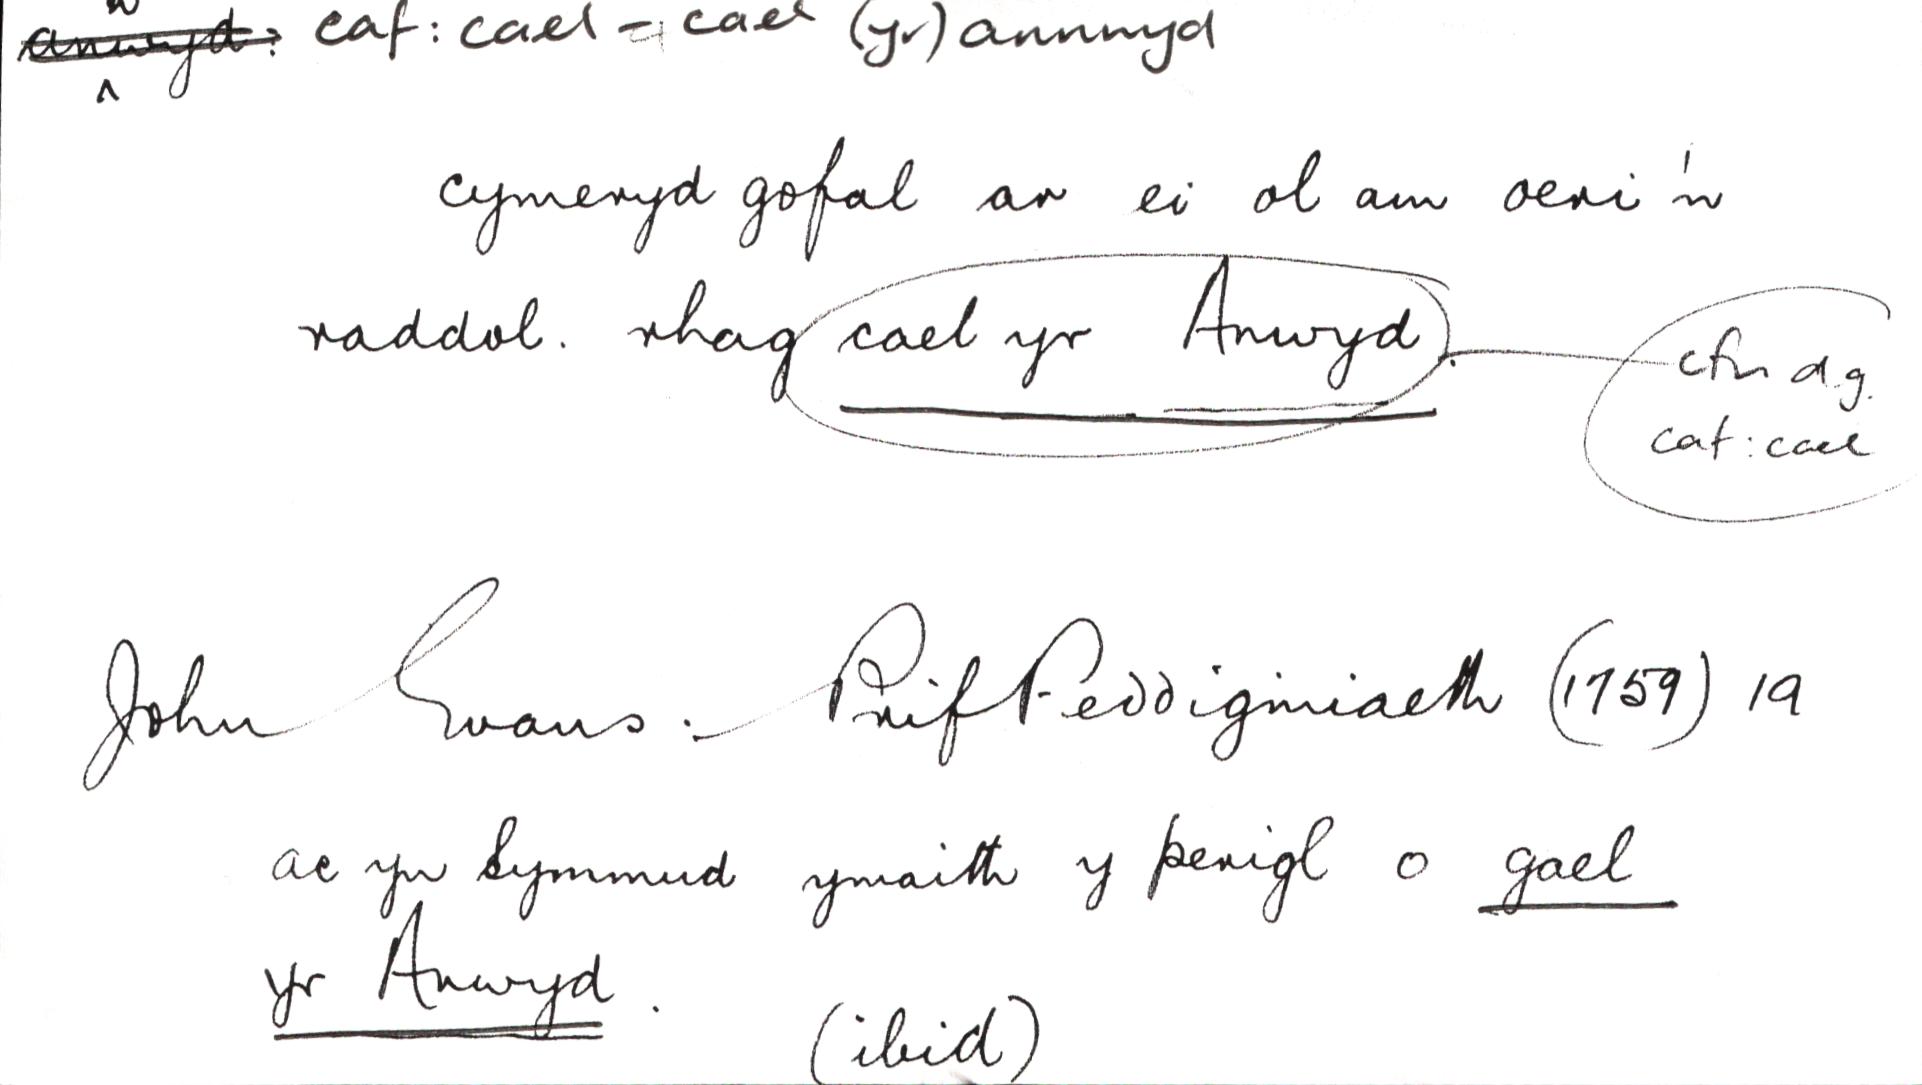 anwyd: caf: cael = cael (yr) annwyd
cymeryd gofal ar ei ol am oeri 'n
raddol. rhag cael yr Anwyd.
cfn d.g.
caf: cael
John Evans: Prif Feddiginiaeth (1759) 19
ac yn symmud ymaith y perigl o gael
yr Anwyd.
(ibid)